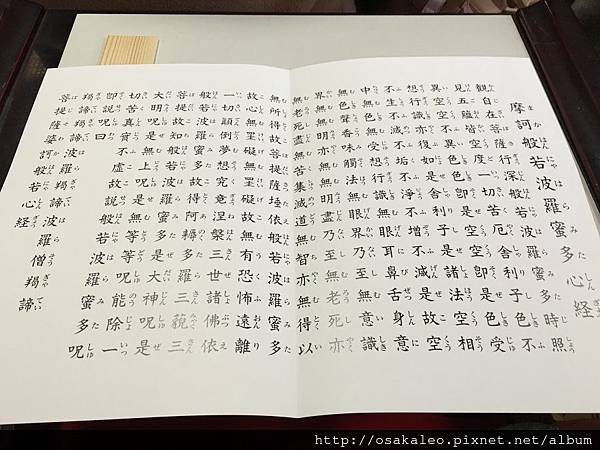 摩訶般若波羅蜜多心経
観自在菩薩行深般若波羅蜜多時照
見五蘊皆空度一切苦厄舎利子色不
異空空不異色色即是空空即是色受
想行識亦復如是舎利子是諸法空相
不生不滅不垢不淨不增不減是故空
中無色無受想行識無眼耳鼻舌身意
無色聲香味觸法無眼界乃至無意識
界無無明亦無無明盡乃至無老死亦
無老死盡無苦集滅道無智亦無得以
無所得故菩提薩埵依般若波羅蜜多
故心無罣礙無罣礙故無有恐怖遠離
一切顛倒夢想究竟涅槃三世諸佛依
般若波羅蜜多故得阿耨多羅三藐三
菩提故知般若波羅蜜多是大神呪是
大明呪是無上呪是無等等呪能除一
切苦真實不虛故說般若波羅蜜多呪
即說呪曰
羯諦羯諦波羅羯諦波羅僧羯諦
菩提薩婆訶般若心経
http://osakaleo.pixnet.net/album